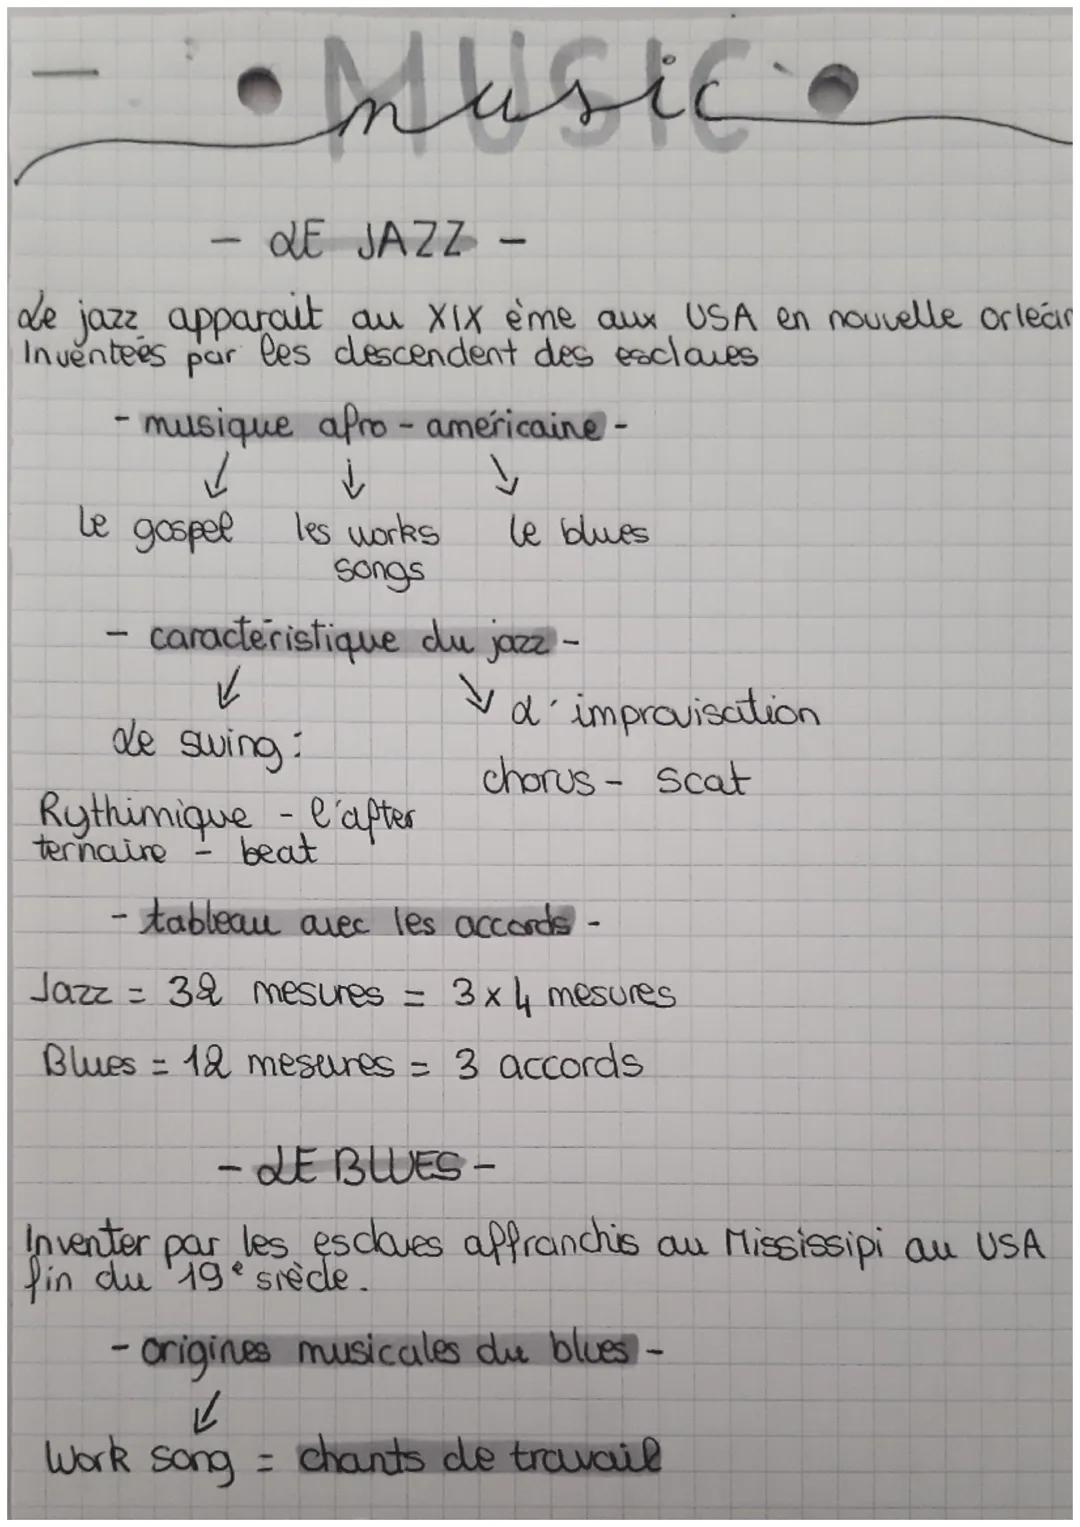 MUSIC
music
- LE JAZZ -
Le jazz apparait au XIX ème aux USA en nouvelle orléan
Inventées par les descendent des esclaves
- musique afro-américaine -
le gospel les works le blues
songs
- caractéristique du jazz -
L'improvisation
Le swing :
chorus - scat
Rythimique - l'after
ternaire - beat
- tableau avec les accords -
Jazz = 32 mesures = 3x4 mesures
Blues = 12 mesures = 3 accords
- LE BLUES -
Inventer par les esclaves affranchis au Mississipi au USA
fin du 19e siècle.
- origines musicales du blues -
Work song = chants de travail